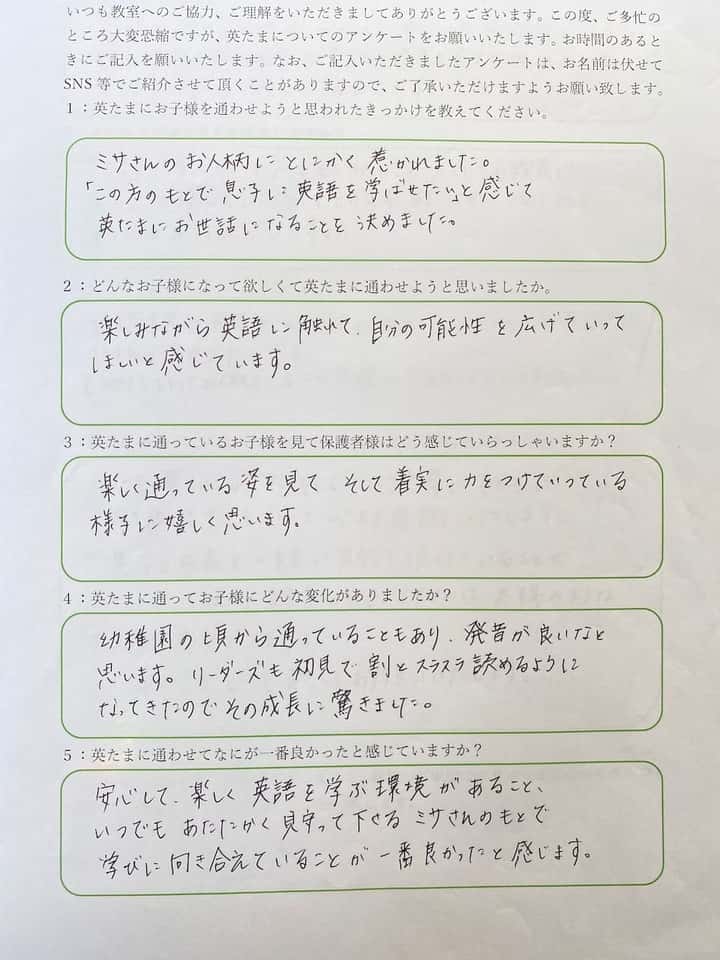 いつも教室へのご協力、ご理解をいただきましてありがとうございます。この度、ご多忙の
ところ大変恐縮ですが、英たまについてのアンケートをお願いいたします。お時間のあると
きにご記入を願いいたします。なお、ご記入いただきましたアンケートは、お名前は伏せて
SNS 等でご紹介させて頂くことがありますので、ご了承いただけますようお願い致します。
１：英たまにお子様を通わせようと思われたきっかけを教えてください。
ミサさんのお人柄にとにかく惹かれました。
「この方のもとで息子に英語を学ばせたい」と感じて
英たまにお世話になることを決めました。
２：どんなお子様になって欲しくて英たまに通わせようと思いましたか。
楽しみながら英語に触れて、自分の可能性を広げていって
ほしいと感じています。
３：英たまに通っているお子様を見て保護者様はどう感じていらっしゃいますか？
楽しく通っている姿を見て そして着実に力をつけていっている
様子に嬉しく思います。
４：英たまに通ってお子様にどんな変化がありましたか？
幼稚園の頃から通っていることもあり、発音が良いなと
思います。リーダーズも初見で割とスラスラ読めるように
なってきたのでその成長に驚きました。
５：英たまに通わせてなにが一番良かったと感じていますか？
安心して、楽しく英語を学ぶ環境があること、
いつでもあたたかく見守って下さるミサさんのもとで
学びに向き合えていることが一番良かったと感じます。